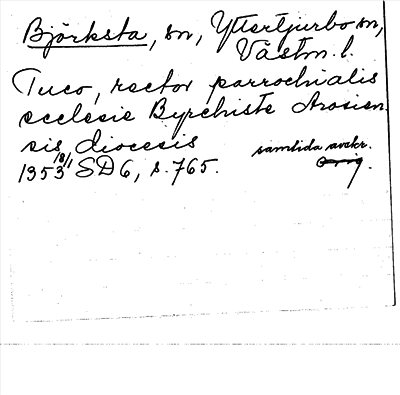 Björksta, sn, Yttertjurbo sn,
Västm. l.
Tuco, rector parrochialis
ecclesie Byrchiste Arosien
sis diocesis
samtida avskr.
1353 18/1 SD6, s. 765.
orig.